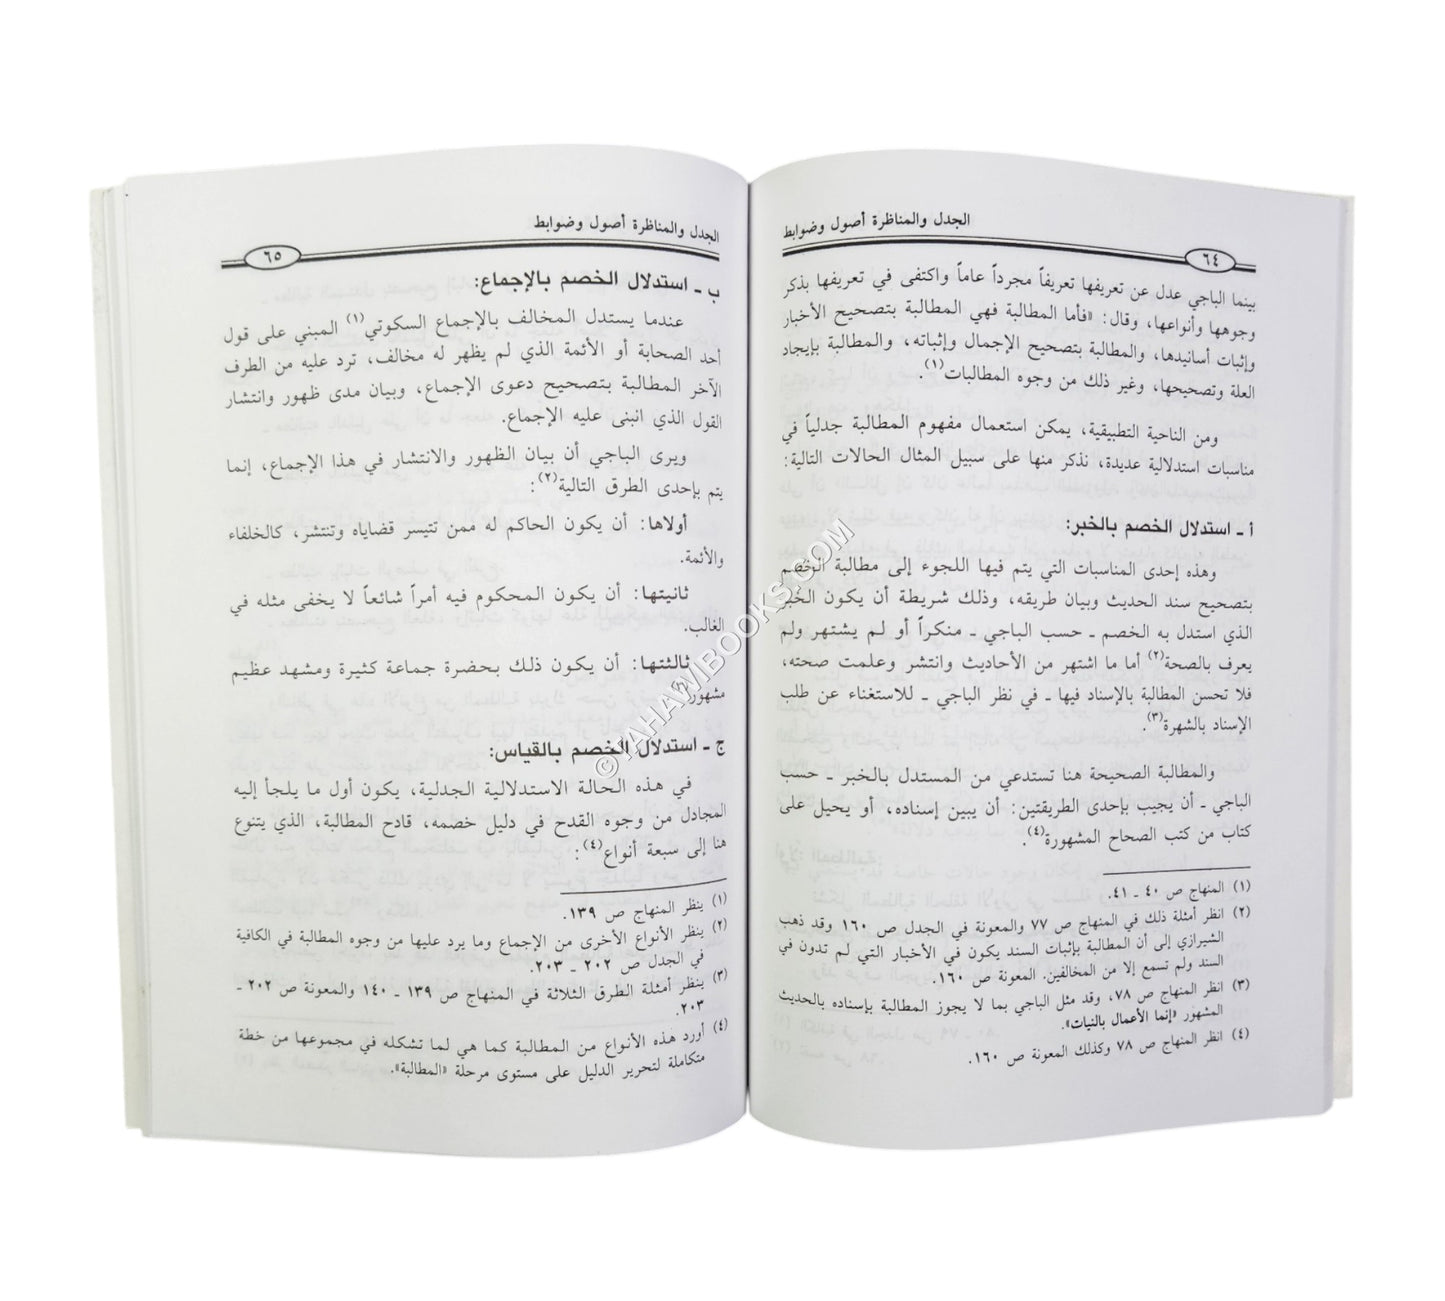 الجدل والمناظرة أصول وضوابط
٦٤
بينما الباجي عدل عن تعريفها تعريفاً مجرداً عاماً واكتفى في تعريفها بذكر
وجوهها وأنواعها، وقال: «فأما المطالبة فهي المطالبة بتصحيح الأخبار
وإثبات أسانيدها، والمطالبة بتصحيح الإجمال وإثباته، والمطالبة بإيجاد
العلة وتصحيحها، وغير ذلك من وجوه المطالبات(١).
ومن الناحية التطبيقية، يمكن استعمال مفهوم المطالبة جدلياً في
مناسبات استدلالية عديدة، نذكر منها على سبيل المثال الحالات التالية:
أ ـ استدلال الخصم بالخبر:
وهذه إحدى المناسبات التي يتم فيها اللجوء إلى مطالبة الخصم
بتصحيح سند الحديث وبيان طريقه، وذلك شريطة أن يكون الخبر
الذي استدل به الخصم ـ حسب الباجي ـ منكراً أو لم يشتهر ولم
يعرف بالصحة(٢) أما ما اشتهر من الأحاديث وانتشر وعلمت صحته،
فلا تحسن المطالبة بالإسناد فيها ـ في نظر الباجي ـ للاستغناء عن طلب
الإسناد بالشهرة(٣).
والمطالبة الصحيحة هنا تستدعي من المستدل بالخبر ـ حسب
الباجي ـ أن يجيب بإحدى الطريقتين: أن يبين إسناده، أو يحيل على
كتاب من كتب الصحاح المشهورة(٤).
(١) المنهاج ص ٤٠ ـ ٤١.
(٢) انظر أمثلة ذلك في المنهاج ص ٧٧ والمعونة في الجدل ص ١٦٠ وقد ذهب
الشيرازي إلى أن المطالبة بإثبات السند يكون في الأخبار التي لم تدون في
السند ولم تسمع إلا من المخالفين. المعونة ص ١٦٠.
(٣) انظر المنهاج ص ٧٨، وقد مثل الباجي بما لا يجوز المطالبة بإسناده بالحديث
المشهور «إنما الأعمال بالنيات».
(٤) انظر المنهاج ص ٧٨ وكذلك المعونة ص ١٦٠.
الجدل والمناظرة أصول وضوابط
٦٥
ب ـ استدلال الخصم بالإجماع:
عندما يستدل المخالف بالإجماع السكوتي(١) المبني على قول
أحد الصحابة أو الأئمة الذي لم يظهر له مخالف، ترد عليه من الطرف
الآخر المطالبة بتصحيح دعوى الإجماع، وبيان مدى ظهور وانتشار
القول الذي انبنى عليه الإجماع.
ويرى الباجي أن بيان الظهور والانتشار في هذا الإجماع، إنما
يتم بإحدى الطرق التالية(٢):
أولاها: أن يكون الحاكم له ممن تتيسر قضاياه وتنتشر، كالخلفاء
والأئمة.
ثانيتها: أن يكون المحكوم فيه أمراً شائعاً لا يخفى مثله في
الغالب.
ثالثتها: أن يكون ذلك بحضرة جماعة كثيرة ومشهد عظيم
مشهور(٣).
ج ـ استدلال الخصم بالقياس:
في هذه الحالة الاستدلالية الجدلية، يكون أول ما يلجأ إليه
المجادل من وجوه القدح في دليل خصمه، قادح المطالبة، الذي يتنوع
هنا إلى سبعة أنواع(٤):
(١) ينظر المنهاج ص ١٣٩.
(٢) ينظر الأنواع الأخرى من الإجماع وما يرد عليها من وجوه المطالبة في الكافية
في الجدل ص ٢٠٢ ـ ٢٠٣.
(٣) ينظر أمثلة الطرق الثلاثة في المنهاج ص ١٣٩ ـ ١٤٠ والمعونة ص ٢٠٢ ـ
٢٠٣.
(٤) أورد هذه الأنواع من المطالبة كما هي لما تشكله في مجموعها من خطة
متكاملة لتحرير الدليل على مستوى مرحلة «المطالبة».